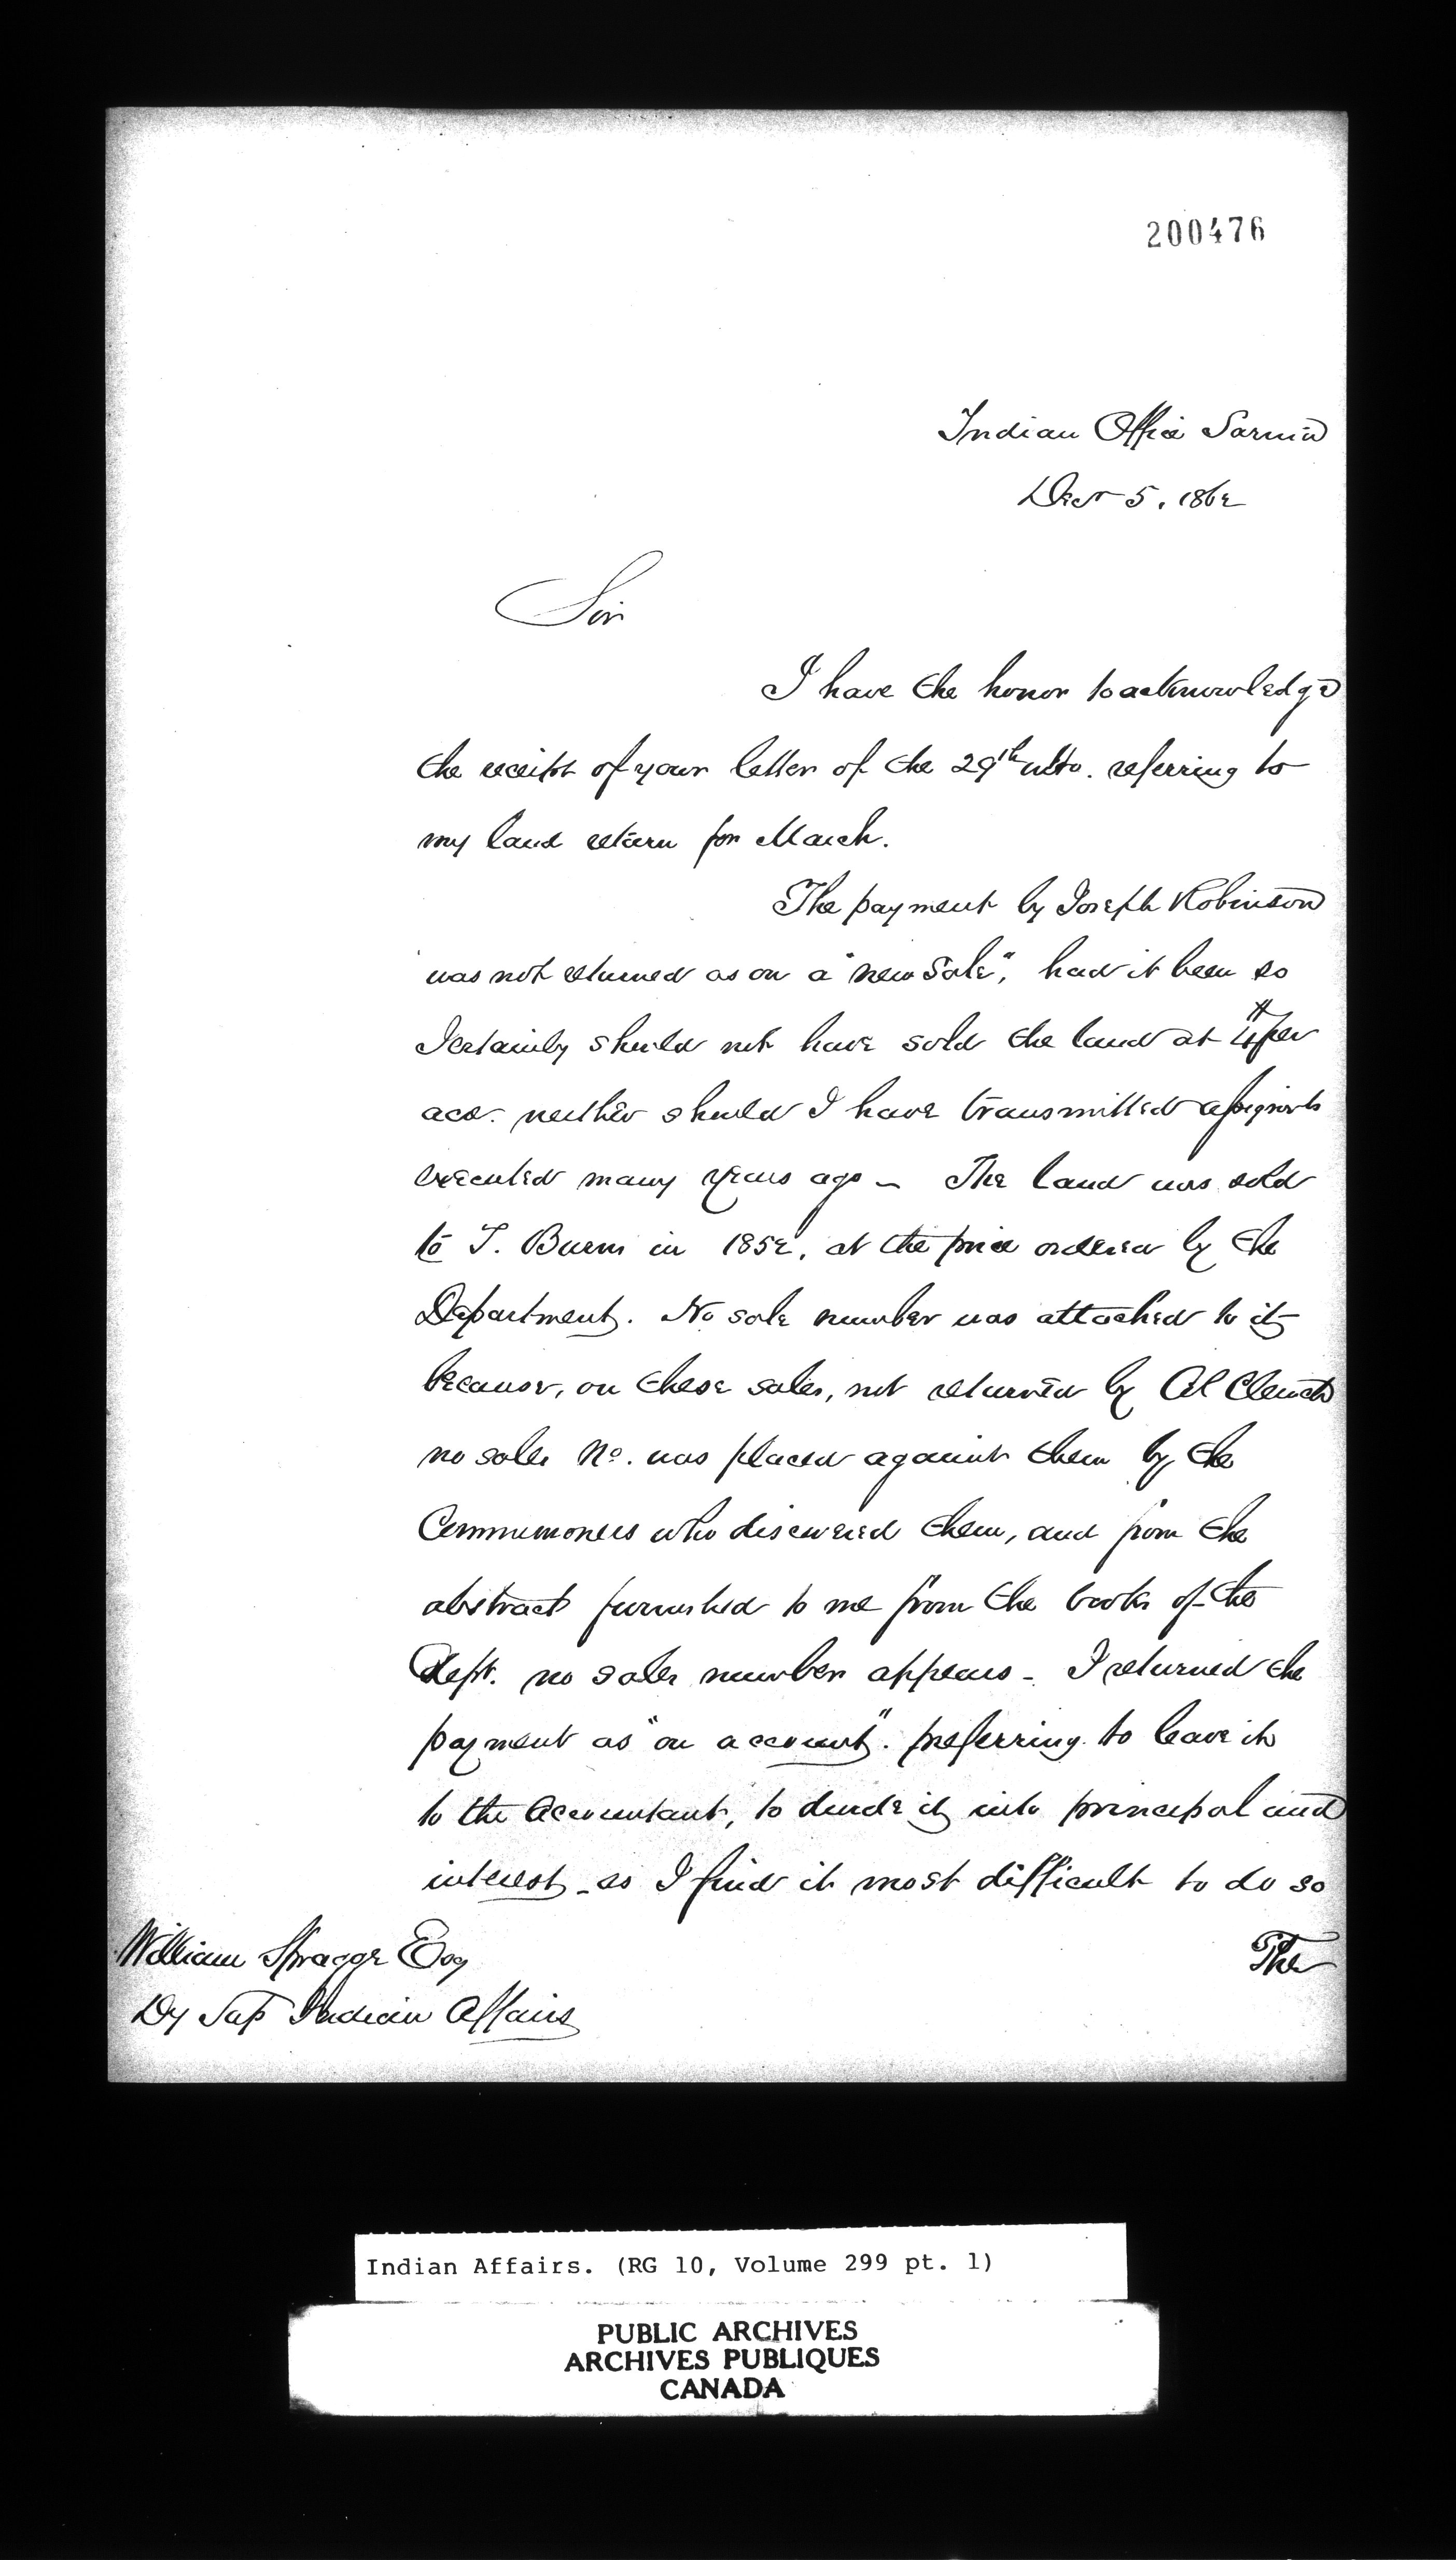 200476
Indian Office Sarnia
Decr 5, 1862
Sir
I have the honor to acknowledge
the receipt of your letter of the 29th ulto. referring to
my land return for March.
The payment by Joseph Robinson
was not returned as on a "new Sale", had it been so
I certainly should not have sold the land at 4/ per
acr. neither should I have transmitted assignmts
executed many years ago - The land was sold
to T. Burns in 1852, at the price ordered by the
Department. No sale number was attached to it
because, on these sales, not returned by Col Clench
no sales No. was placed against them by the
Commissioners who discovered them, and from the
abstract furnished to me from the books of the
Dept. no sales number appears - I returned the
payment as "on account". preferring to leave it
to the Accountant, to divide it into principal and
interest - as I find it most difficult to do so
The
William Spragge Esq
Dy Supt Indian Affairs
Indian Affairs. (RG 10, Volume 299 pt. 1)
PUBLIC ARCHIVES
ARCHIVES PUBLIQUES
CANADA